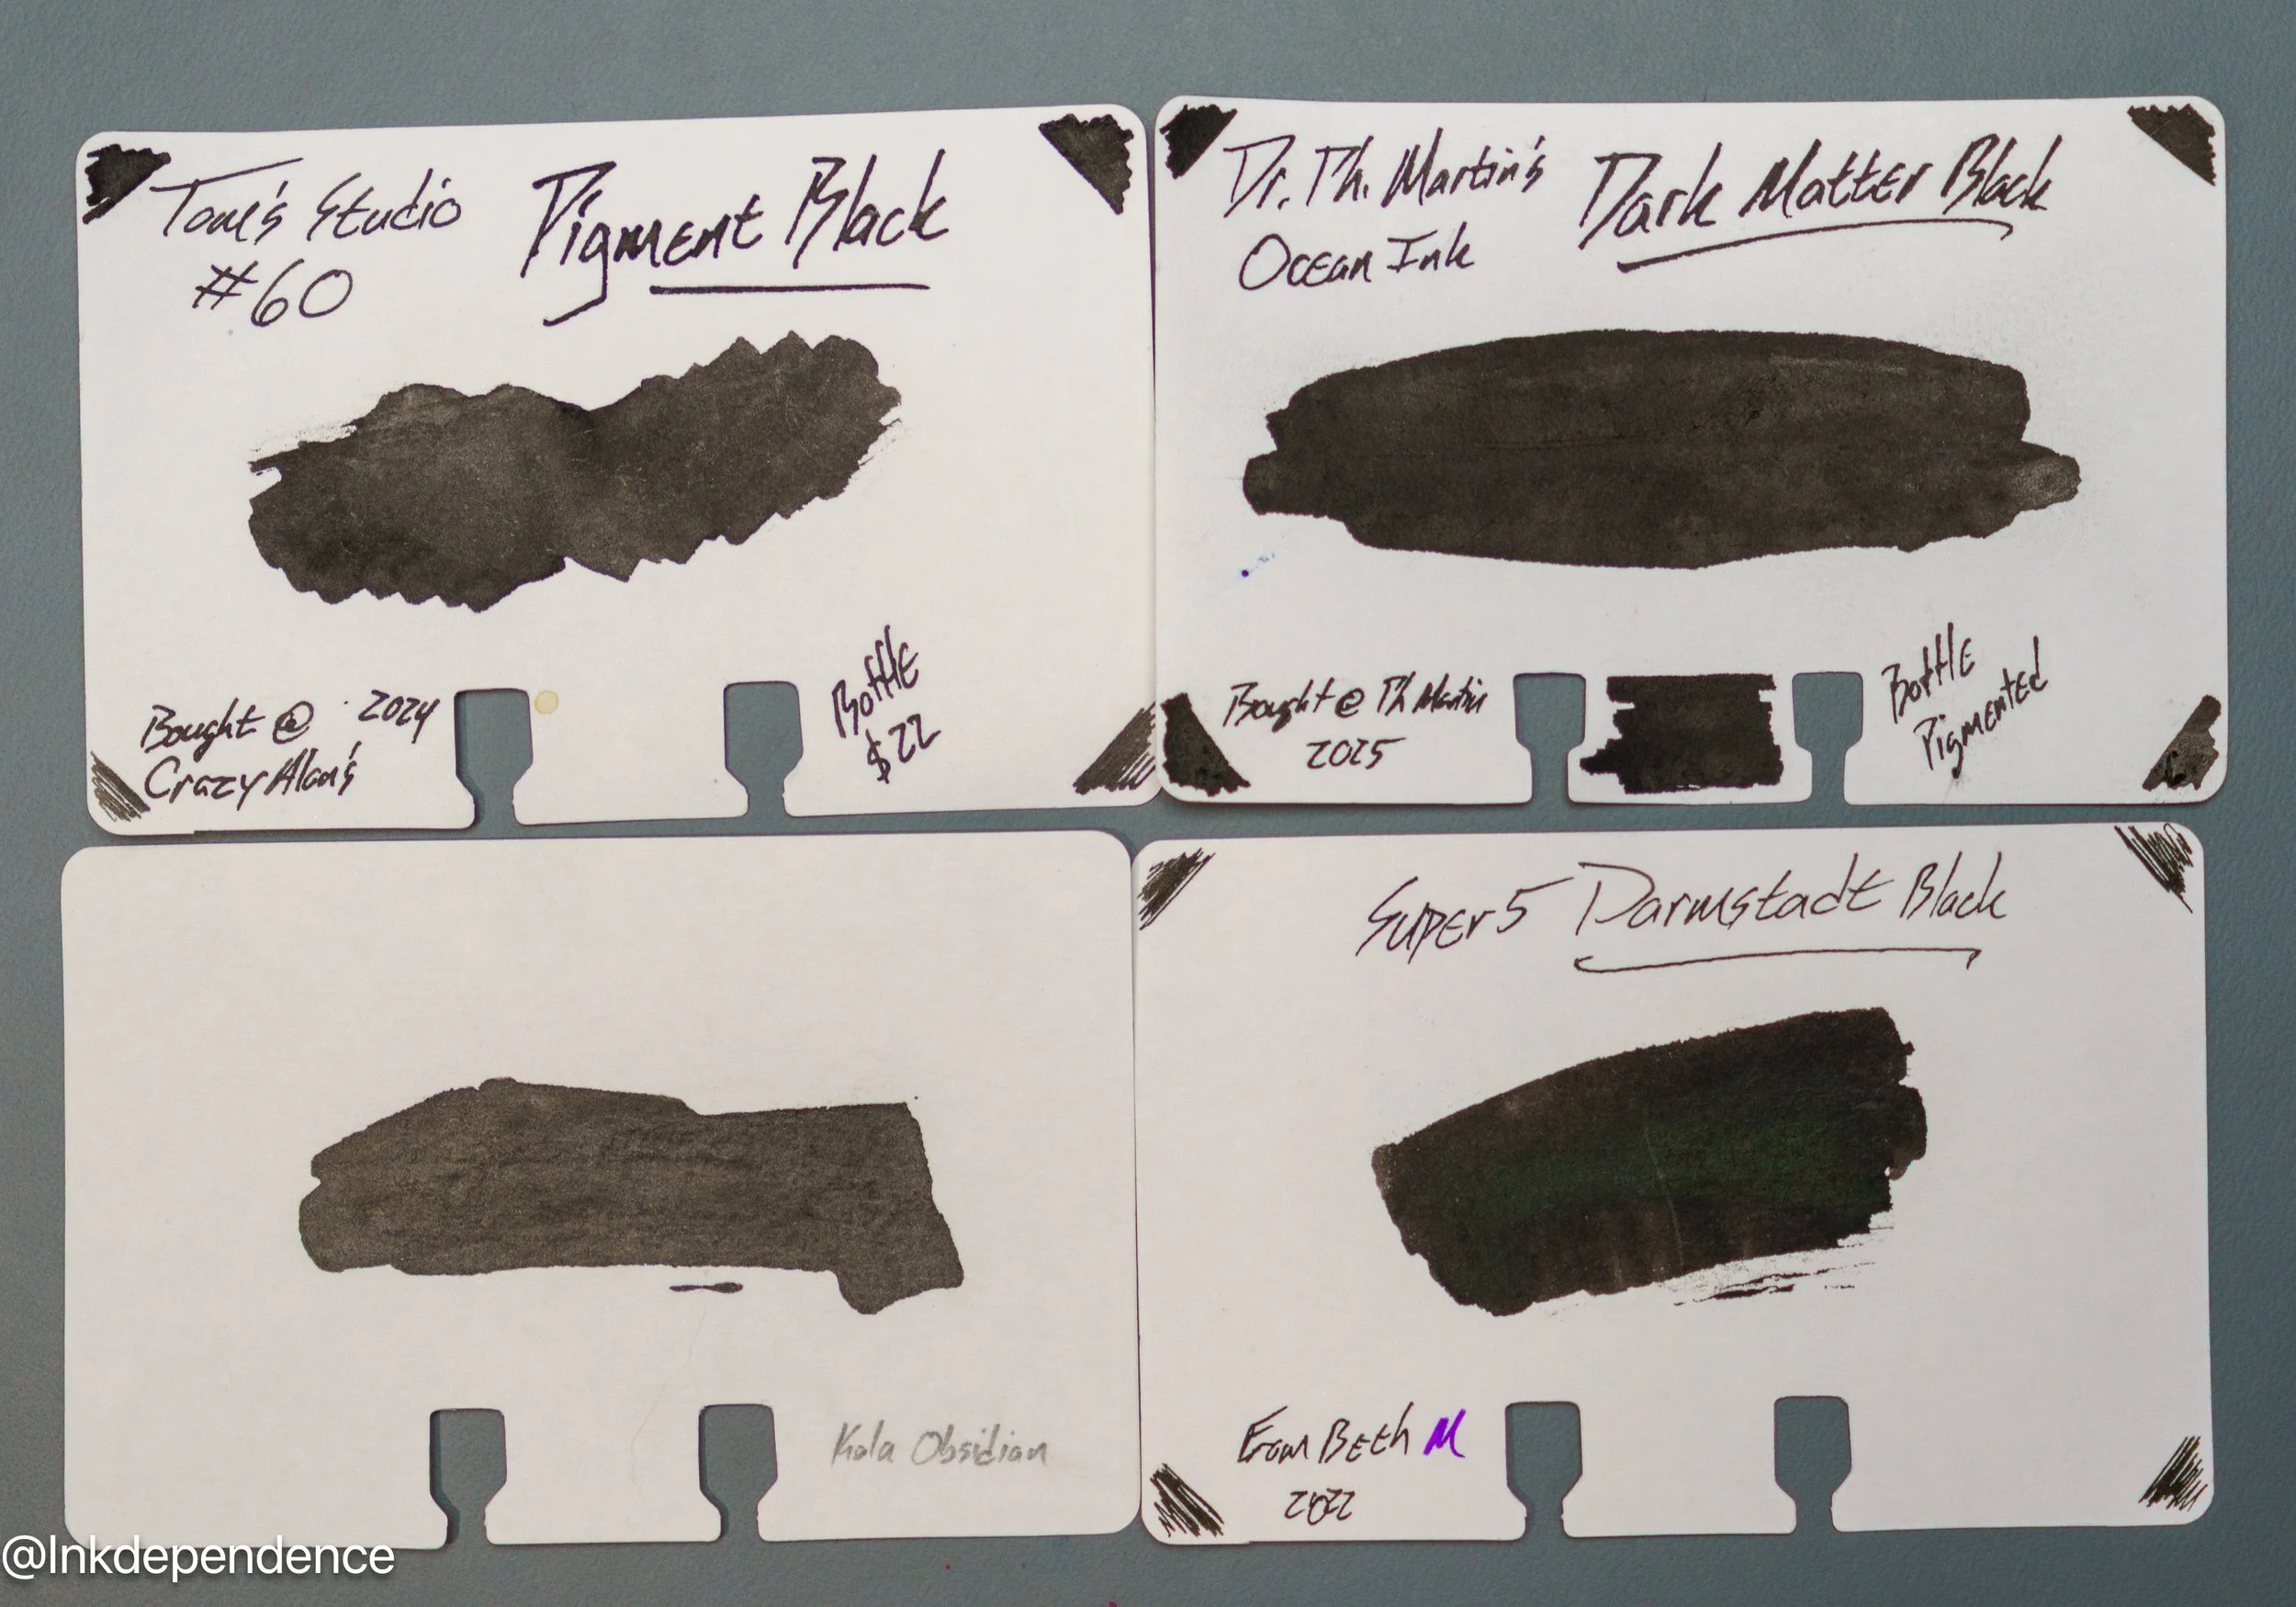 Tom's Studio
Pigment Black
#60
Bought @ 2024
Crazy Alan's
Bottle
$22
Dr. Ph. Martin's
Ocean Ink
Dark Matter Black
Bought @ Ph Martin
2025
Bottle
Pigmented
Kala Obsidian
Super5 Darmstadt Black
From Beth M
2022
@Inkdependence